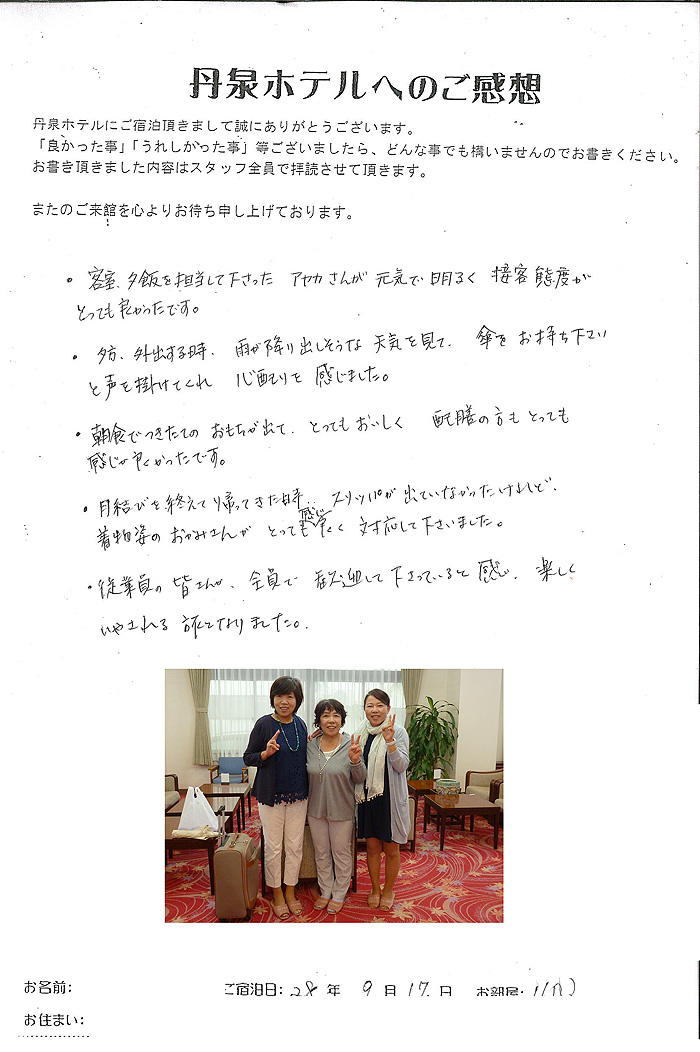 丹泉ホテルへのご感想
丹泉ホテルにご宿泊頂きまして誠にありがとうございます。
「良かった事」「うれしかった事」等ございましたら、どんな事でも構いませんのでお書きください。
お書き頂きました内容はスタッフ全員で拝読させて頂きます。
またのご来館を心よりお待ち申し上げております。
・客室、夕飯を担当して下さった アヤカさんが 元気で明るく 接客態度が
とっても良かったです。
・夕方、外出する時、雨が降り出しそうな天気を見て、傘をお持ち下さい
と声を掛けてくれ 心配りを感じました。
・朝食でつきたての おもちが出て、とってもおいしく 配膳の方もとっても
感じが良くかったです。
・月結びを終えて帰ってきた時、スリッパが出ていなかったけれど、
着物姿の おかみさんが とっても感じ良く 対応して下さいました。
・従業員の皆さんが、全員で 歓迎して下さっていると感じ、楽しく
いやされる 旅となりました。
お名前: ご宿泊日: 28 年 9 月 17 日 お部屋:
お住まい: